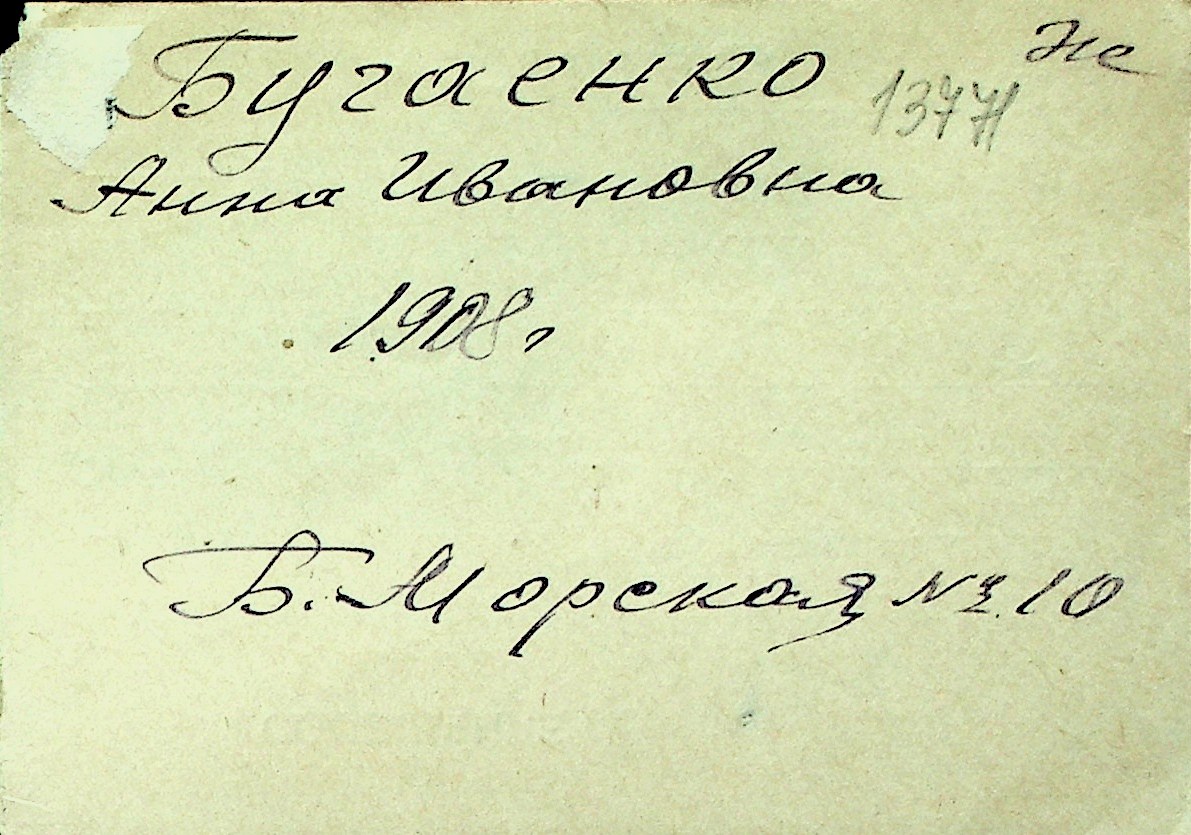 Бугаенко
Анна Ивановна
1908 г
Б. Морская № 10